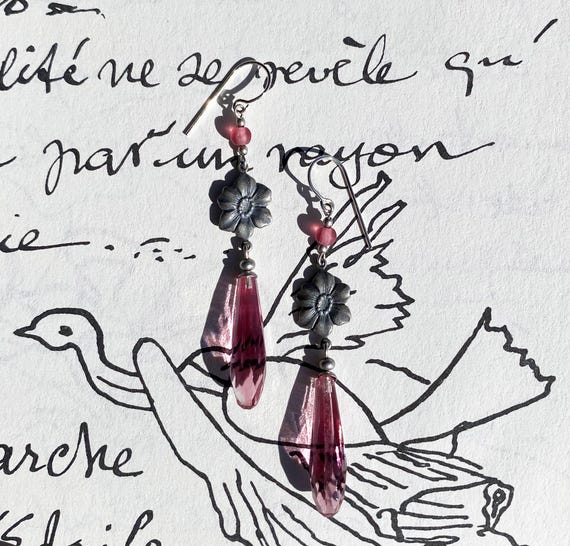 lité ne se revèle qu'
par un rayon
ie...
arche